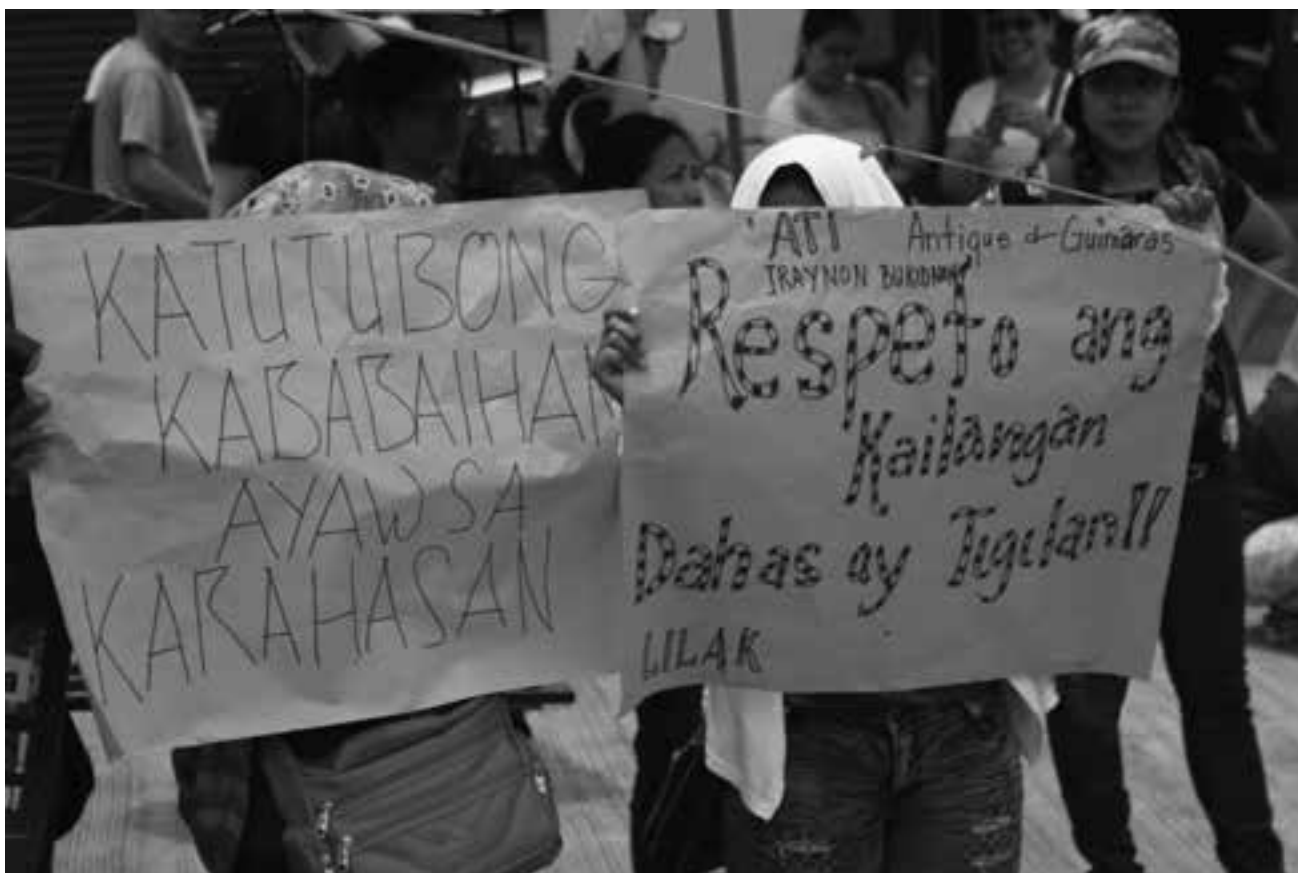 KATUTUBONG
KABABAIHAN
AYAW SA
KARAHASAN
'ATI Antique & Guimaras
IRAYNON BUKIDNON
Respeto ang
Kailangan
Dahas ay Tigilan!!
LILAK